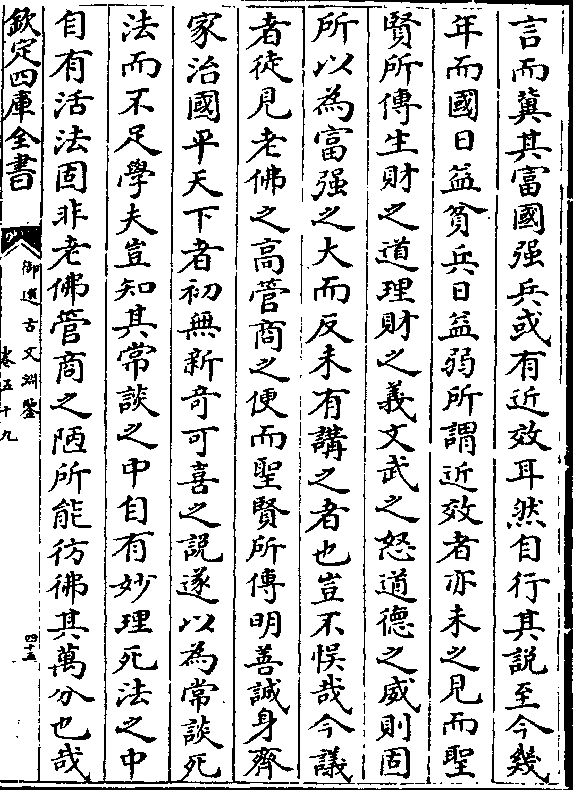 言而冀其富國强兵或有近效耳然自行其說至今幾
年而國日益貧兵日益弱所謂近效者亦未之見而聖
賢所傳生財之道理財之義文武之怒道德之威則固
所以為富强之大而反未有講之者也豈不悮哉今議
者徒見老佛之高管商之便而聖賢所傳明善誠身齊
家治國平天下者初無新奇可喜之說遂以為常談死
法而不足學夫豈知其常談之中自有妙理死法之中
自有活法固非老佛管商之陋所能彷彿其萬分也哉
欽定四庫全書
御選古文淵鑒
卷五十九
四十五